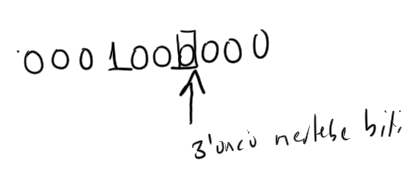 0001000000
3'üncü mertebe biti